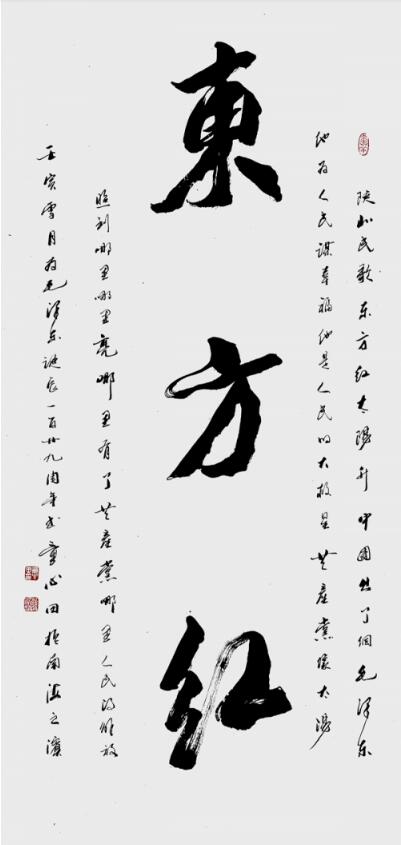 陕北民歌东方红太陽升中國出了個毛泽东
他为人民谋幸福他是人民的大救星共產黨像太陽
東方红
照到哪里哪里亮哪里有了共產黨哪里人民得解放
壬寅雪月为毛泽东诞辰一百廿九周年书童心田於南海之濱